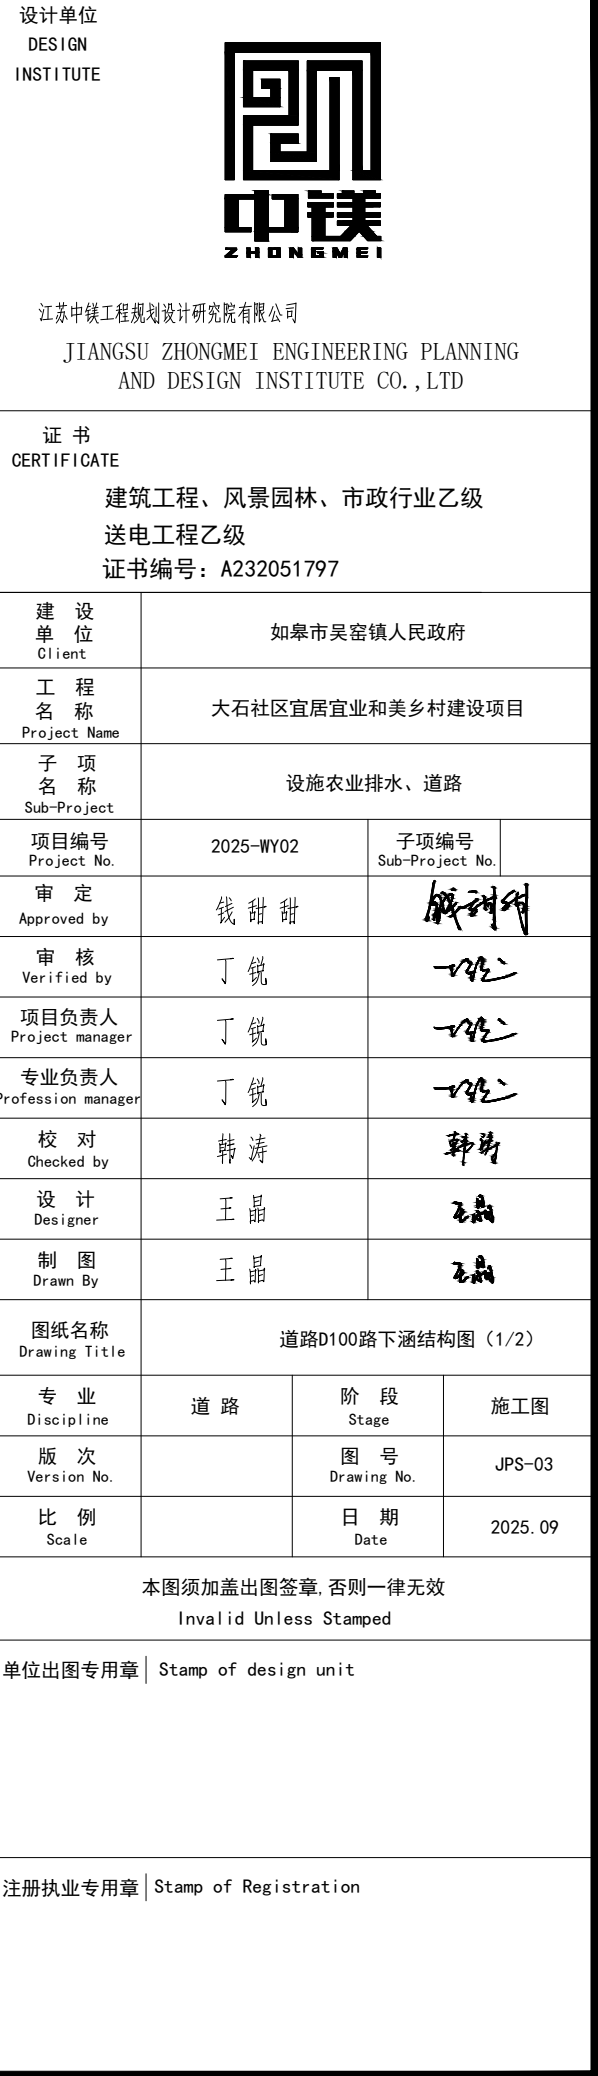 设计单位
DESIGN
INSTITUTE
中镁
ZHONGMEI
江苏中镁工程规划设计研究院有限公司
JIANGSU ZHONGMEI ENGINEERING PLANNING
AND DESIGN INSTITUTE CO.,LTD
证 书
CERTIFICATE
建筑工程、风景园林、市政行业乙级
送电工程乙级
证书编号：A232051797
建 设
单 位
Client
如皋市吴窑镇人民政府
工 程
名 称
Project Name
大石社区宜居宜业和美乡村建设项目
子 项
名 称
Sub-Project
设施农业排水、道路
项目编号
Project No.
2025-WY02
子项编号
Sub-Project No.
审 定
Approved by
钱 甜 甜
钱甜甜
审 核
Verified by
丁 锐
丁锐
项目负责人
Project manager
丁 锐
丁锐
专业负责人
Profession manager
丁 锐
丁锐
校 对
Checked by
韩 涛
韩涛
设 计
Designer
王 晶
王晶
制 图
Drawn By
王 晶
王晶
图纸名称
Drawing Title
道路D100路下涵结构图（1/2）
专 业
Discipline
道 路
阶 段
Stage
施工图
版 次
Version No.
图 号
Drawing No.
JPS-03
比 例
Scale
日 期
Date
2025.09
本图须加盖出图签章,否则一律无效
Invalid Unless Stamped
单位出图专用章 Stamp of design unit
注册执业专用章 Stamp of Registration